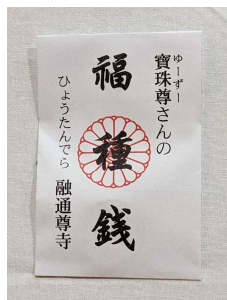 ゆーずー
寶珠尊さんの
福種銭
ひょうたんでら
融通尊寺